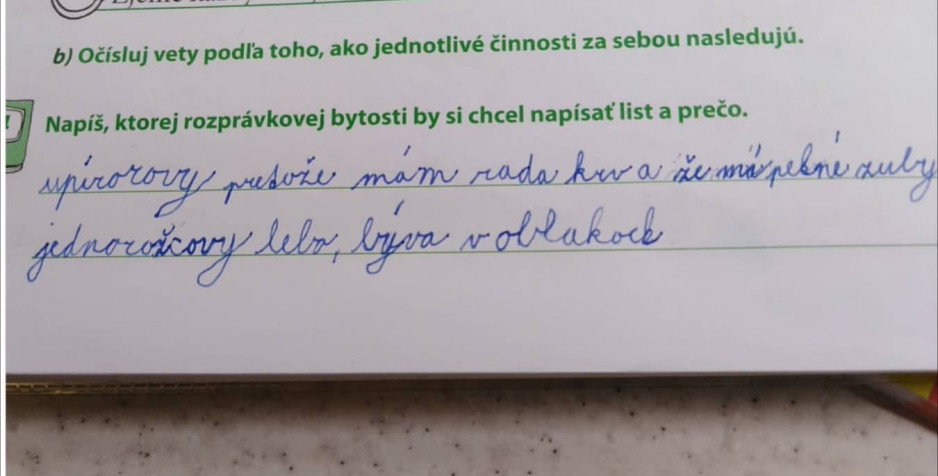 b) Očísluj vety podľa toho, ako jednotlivé činnosti za sebou nasledujú.
Napíš, ktorej rozprávkovej bytosti by si chcel napísať list a prečo.
upírorovy pretože mám rada krv a že má pekné zuby
jednorožcovy lebo, býva v oblakoch